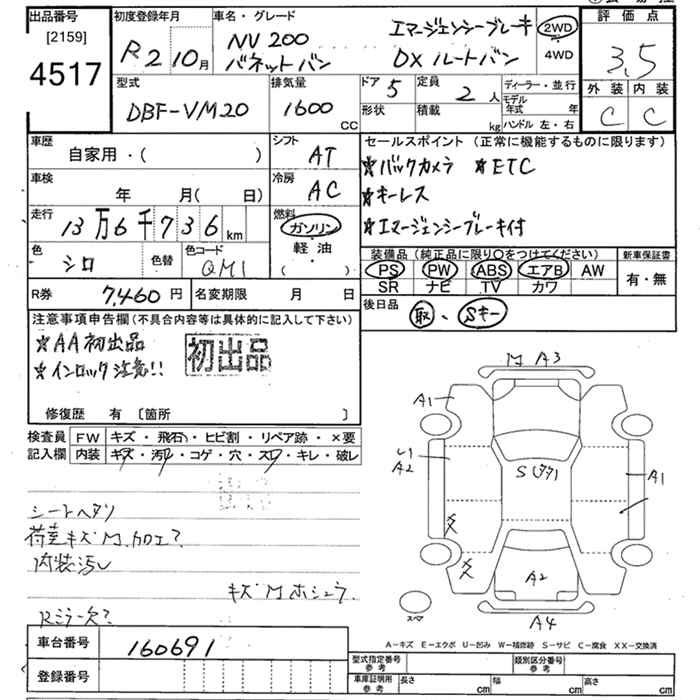 出品番号 初度登録年月 車名・グレード 評価点
[2159]
4517
R2 10月
NV200 エマージェンシーブレーキ 2WD
バネットバン DXルートバン 4WD
3.5
型式 排気量 ドア 5 定員 2人 ディーラー・並行
外装 内装
DBF-VM20 1600 CC 形状 積載 kg モデル年式 年
ハンドル 左・右
C C
車歴 自家用・( )
シフト AT
セールスポイント(正常に機能するものに限ります)
★バックカメラ ★ETC
車検 年 月( 日)
冷房 AC
★キーレス
走行 13万6千736km
燃料 ガソリン・軽油 ( )
★エマージェンシーブレーキ付
色 シロ 色替 色コード QM1
装備品(純正品に限り○をつけてください) 新車保証書
PS PW ABS エアB AW
SR ナビ TV カワ
有・無
R券 7,460円 名変期限 月 日
後日品 取 ・ Sキー
注意事項申告欄(不具合内容等は具体的に記入して下さい)
★AA初出品
初出品
★インロック注意!!
修復歴 有 [箇所 ]
検査員 FW キズ・飛石・ヒビ割・リペア跡・×要
記入欄 内装 キズ・汚レ・コゲ・穴・スレ・キレ・破レ
M A3
A1
A2
A1
A2
A4
スペア
シートヘタリ
荷室キズM カロエ?
内装汚レ
キズMホシュウ
Rミラー欠?
A-キズ E-エクボ U-凹み W-補修跡 S-サビ C-腐食 XX-交換済
車台番号 160691
登録番号
型式指定番号 参考 類別区分番号 参考
車庫証明用 参考 長さ cm 幅 cm 高さ cm